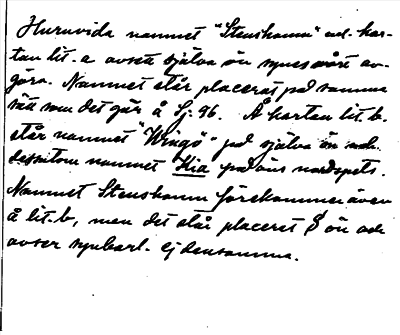 Huruvida namnet "Stenshamn" å kar-
tan lit. a avser själva ön synes svårt av-
göra. Namnet står placerat på samma
sätt som det går å Sj. 96. Å kartan lit. b.
står namnet "Wingö" på själva ön och
dessutom namnet Hia på öns nordspets.
Namnet Stenshamn förekommer även
å lit. b, men det står placerat S ön och
avser synbarl. ej densamma.